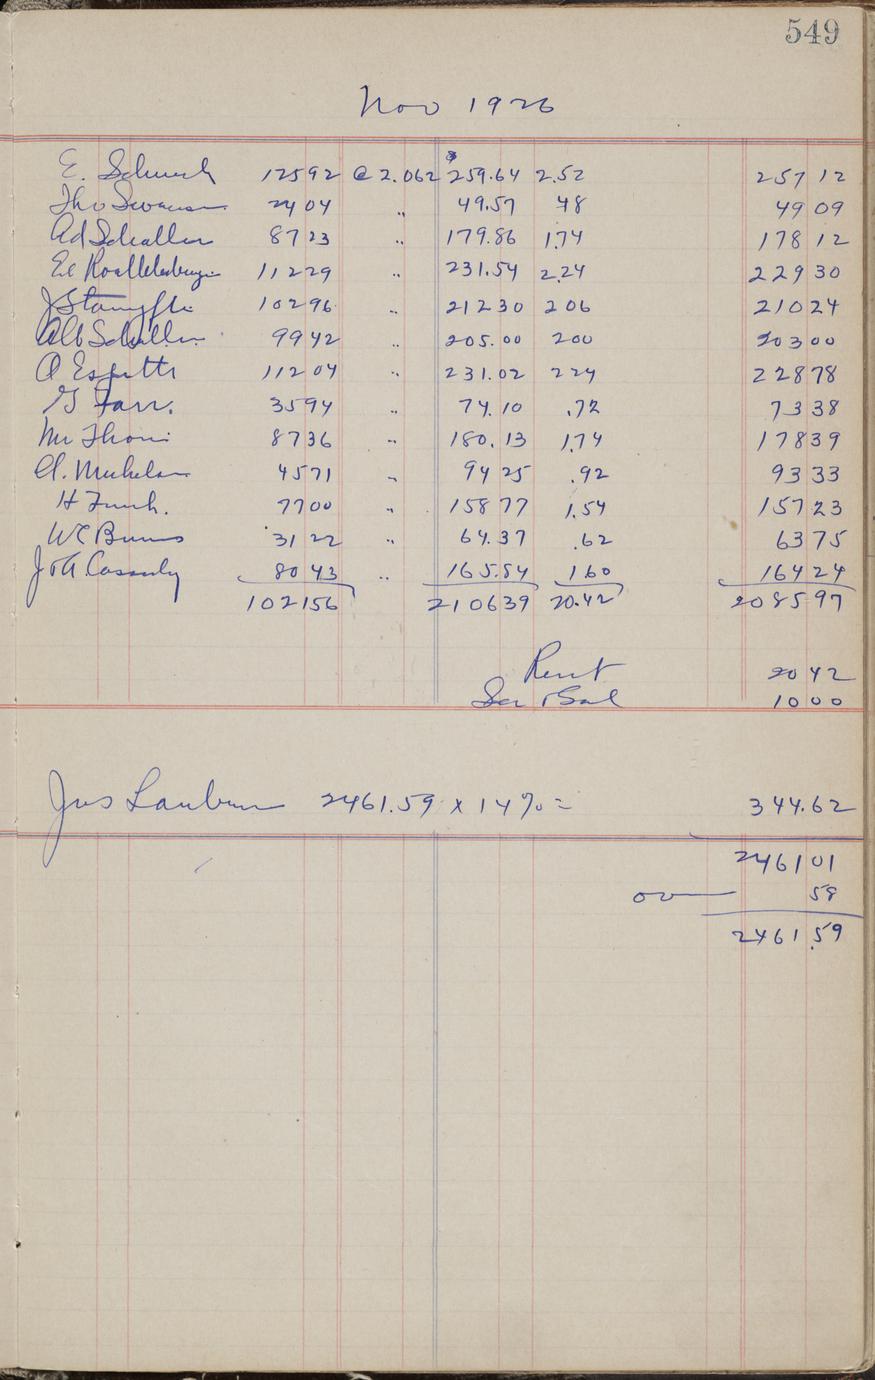 549
Nov 1926
E. Schuch 12592 @ 2.062 $259.64 2.52 257 12
Tho Swanson 2404 " 49.57 48 49 09
Ad Schaller 8723 " 179.86 1.74 178 12
Ed 11229 " 231.54 2.24 229 30
J 10296 " 212 30 2 06 210 24
Alb Schaller 9942 " 205.00 200 203 00
A Espetti 11204 " 231.02 224 228 78
G Farr. 3594 " 74.10 .72 73 38
Mr Thoni 8736 " 180.13 1.74 178 39
A. 4571 " 94 25 .92 93 33
H Funk. 7700 " 158 77 1.54 157 23
W C Burns 3122 " 64.37 .62 63 75
Jos A Cassidy 8043 " 165.84 1.60 164 24
102156 2106 39 20.42 2085 97
Rent 20 42
Sec Sal 10 00
Jos 2461.59 x 14% = 344.62
2461 01
ov — 58
2461.59